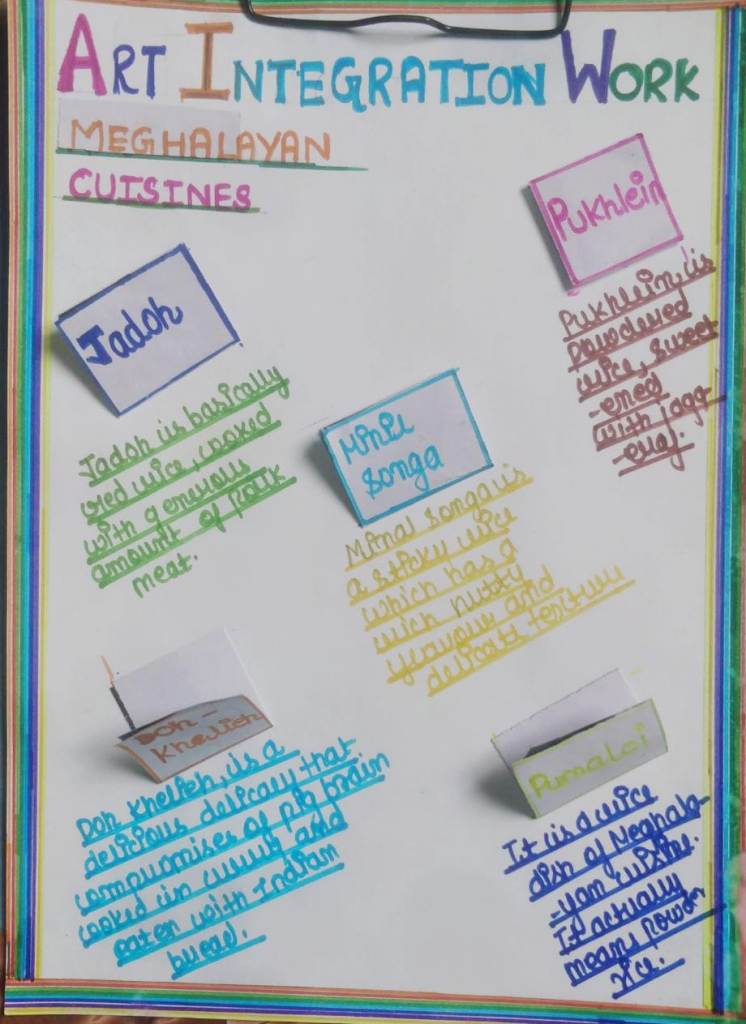 ART INTEGRATION WORK
MEGHALAYAN
CUISINES
Pukhlein
Pukhlein, is
powdered
rice, sweet
-ened
with jagg
-eray.
Jadoh
Jadoh is basically
red rice, cooked
with generous
amount of pork
meat.
Minil
Songa
Minal Songa is
a sticky rice
which has a
rich nutty
flavour and
delicate texture
Doh -
Khelieh
Doh Khelieh, is a
delicious delicacy that
compromises of pig brain
cooked in curry and
eaten with Indian
bread.
Pumaloi
It is a rice
dish of Meghala-
-yan cuisine.
It actually
means powder
rice.